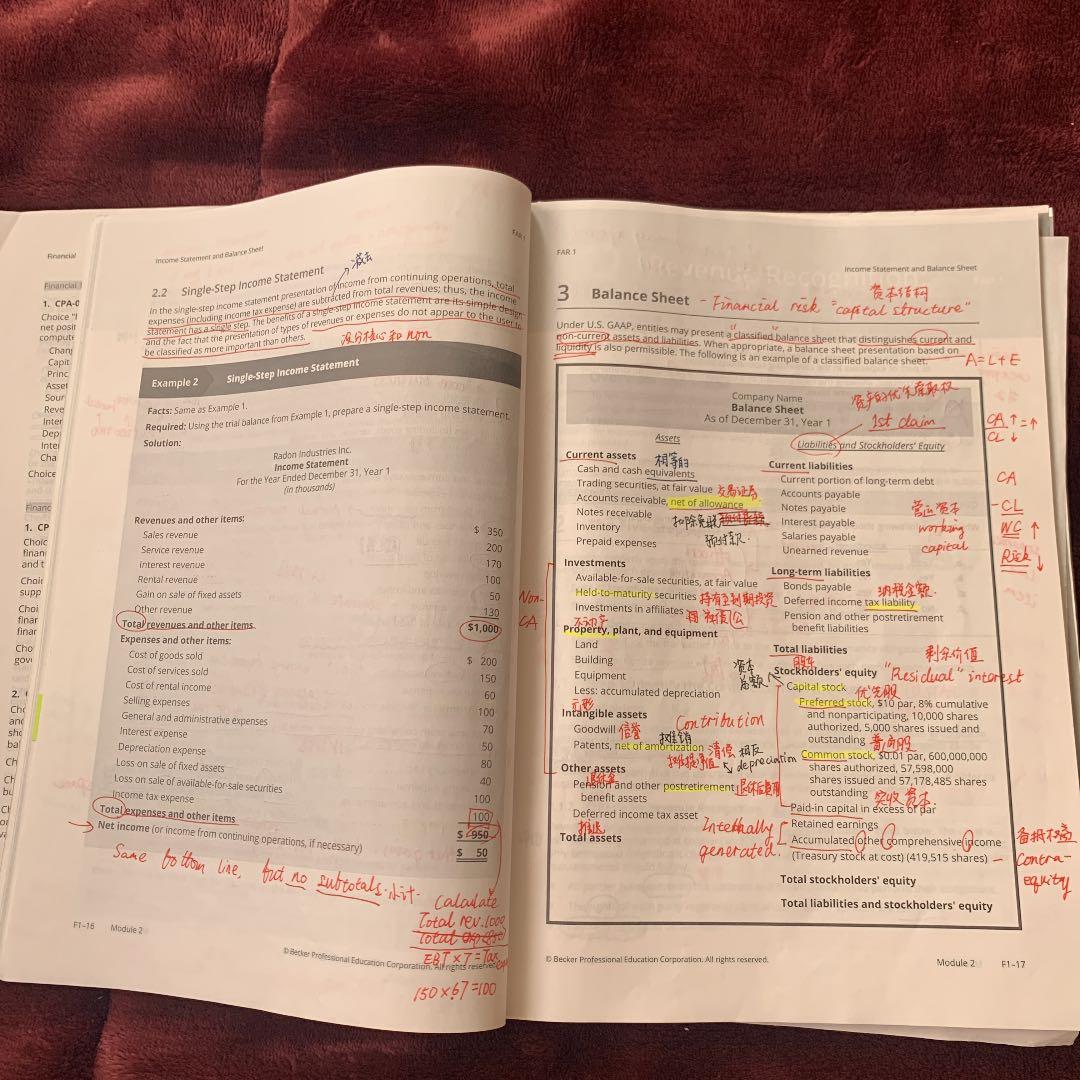 Financial
1. CPA-0
Choice "I
net posit
compute
Chang
Capit
Princ
Asset
Sour
Reve
Inter
Dep
Inte
Cha
Choice
Financ
1. CP
Choic
finan
and t
Choi
supp
Choi
finar
finar
Cho
gove
2.
Income Statement and Balance Sheet
FAR 1
减去
2.2 Single-Step Income Statement
In the single-step income statement presentation of income from continuing operations, total
expenses (including income tax expense) are subtracted from total revenues; thus, the income
statement has a single step. The benefits of a single-step income statement are its simple design
and the fact that the presentation of types of revenues or expenses do not appear to the user to
be classified as more important than others.
没分核心和 non
Example 2 Single-Step Income Statement
Facts: Same as Example 1.
Required: Using the trial balance from Example 1, prepare a single-step income statement.
Solution:
Radon Industries Inc.
Income Statement
For the Year Ended December 31, Year 1
(in thousands)
Revenues and other items:
Sales revenue $ 350
Service revenue 200
Interest revenue 170
Rental revenue 100
Gain on sale of fixed assets 50
Other revenue 130
Total revenues and other items $1,000
Expenses and other items:
Cost of goods sold $ 200
Cost of services sold 150
Cost of rental income 60
Selling expenses 100
General and administrative expenses 70
Interest expense 50
Depreciation expense 80
Loss on sale of fixed assets 40
Loss on sale of available-for-sale securities 100
Income tax expense 100
Total expenses and other items $ 950
Net income (or income from continuing operations, if necessary) $ 50
Same bottom line, but no subtotals. 小计.
Calculate
Total rev. 1000
EBT × T = Tax
150 × .67 = 100
F1-16 Module 2
© Becker Professional Education Corporation. All rights reserved.
FAR 1
Income Statement and Balance Sheet
资本结构
3 Balance Sheet - Financial risk "capital structure"
Under U.S. GAAP, entities may present a classified balance sheet that distinguishes current and
non-current assets and liabilities. When appropriate, a balance sheet presentation based on
liquidity is also permissible. The following is an example of a classified balance sheet.
A=L+E
Company Name
Balance Sheet
As of December 31, Year 1
1st claim
Assets
Liabilities and Stockholders' Equity
CA ↑ = ↑
CL ↓
CA
- CL
WC ↑
Risk ↓
Current assets
相等的
Cash and cash equivalents
Trading securities, at fair value 交易证券
Accounts receivable, net of allowance
Notes receivable
Inventory
预付款.
Prepaid expenses
Non-
CA
Investments
Available-for-sale securities, at fair value
Held-to-maturity securities 持有至到期投资
Investments in affiliates
不动产
Property, plant, and equipment
Land
Building
Equipment
Less: accumulated depreciation
无形
Intangible assets
Contribution
Goodwill 信誉
摊销
Patents, net of amortization
depreciation
Other assets
退休金
Pension and other postretirement
benefit assets
Deferred income tax asset
推迟
Total assets
Internally
generated.
Current liabilities
Current portion of long-term debt
Accounts payable
Notes payable
Interest payable
Salaries payable
Unearned revenue
营运资本
working
capital
Long-term liabilities
Bonds payable
纳税金额.
Deferred income tax liability
Pension and other postretirement
benefit liabilities
Total liabilities
剩余价值
股东
Stockholders' equity "Residual" interest
资本
总额
Capital stock
优先股
Preferred stock, $10 par, 8% cumulative
and nonparticipating, 10,000 shares
authorized, 5,000 shares issued and
outstanding
普通股
Common stock, $0.01 par, 600,000,000
shares authorized, 57,598,000
shares issued and 57,178,485 shares
outstanding
实收资本.
Paid-in capital in excess of par
Retained earnings
Accumulated other comprehensive income
(Treasury stock at cost) (419,515 shares) — Contra-
equity
Total stockholders' equity
Total liabilities and stockholders' equity
© Becker Professional Education Corporation. All rights reserved.
Module 2 F1-17